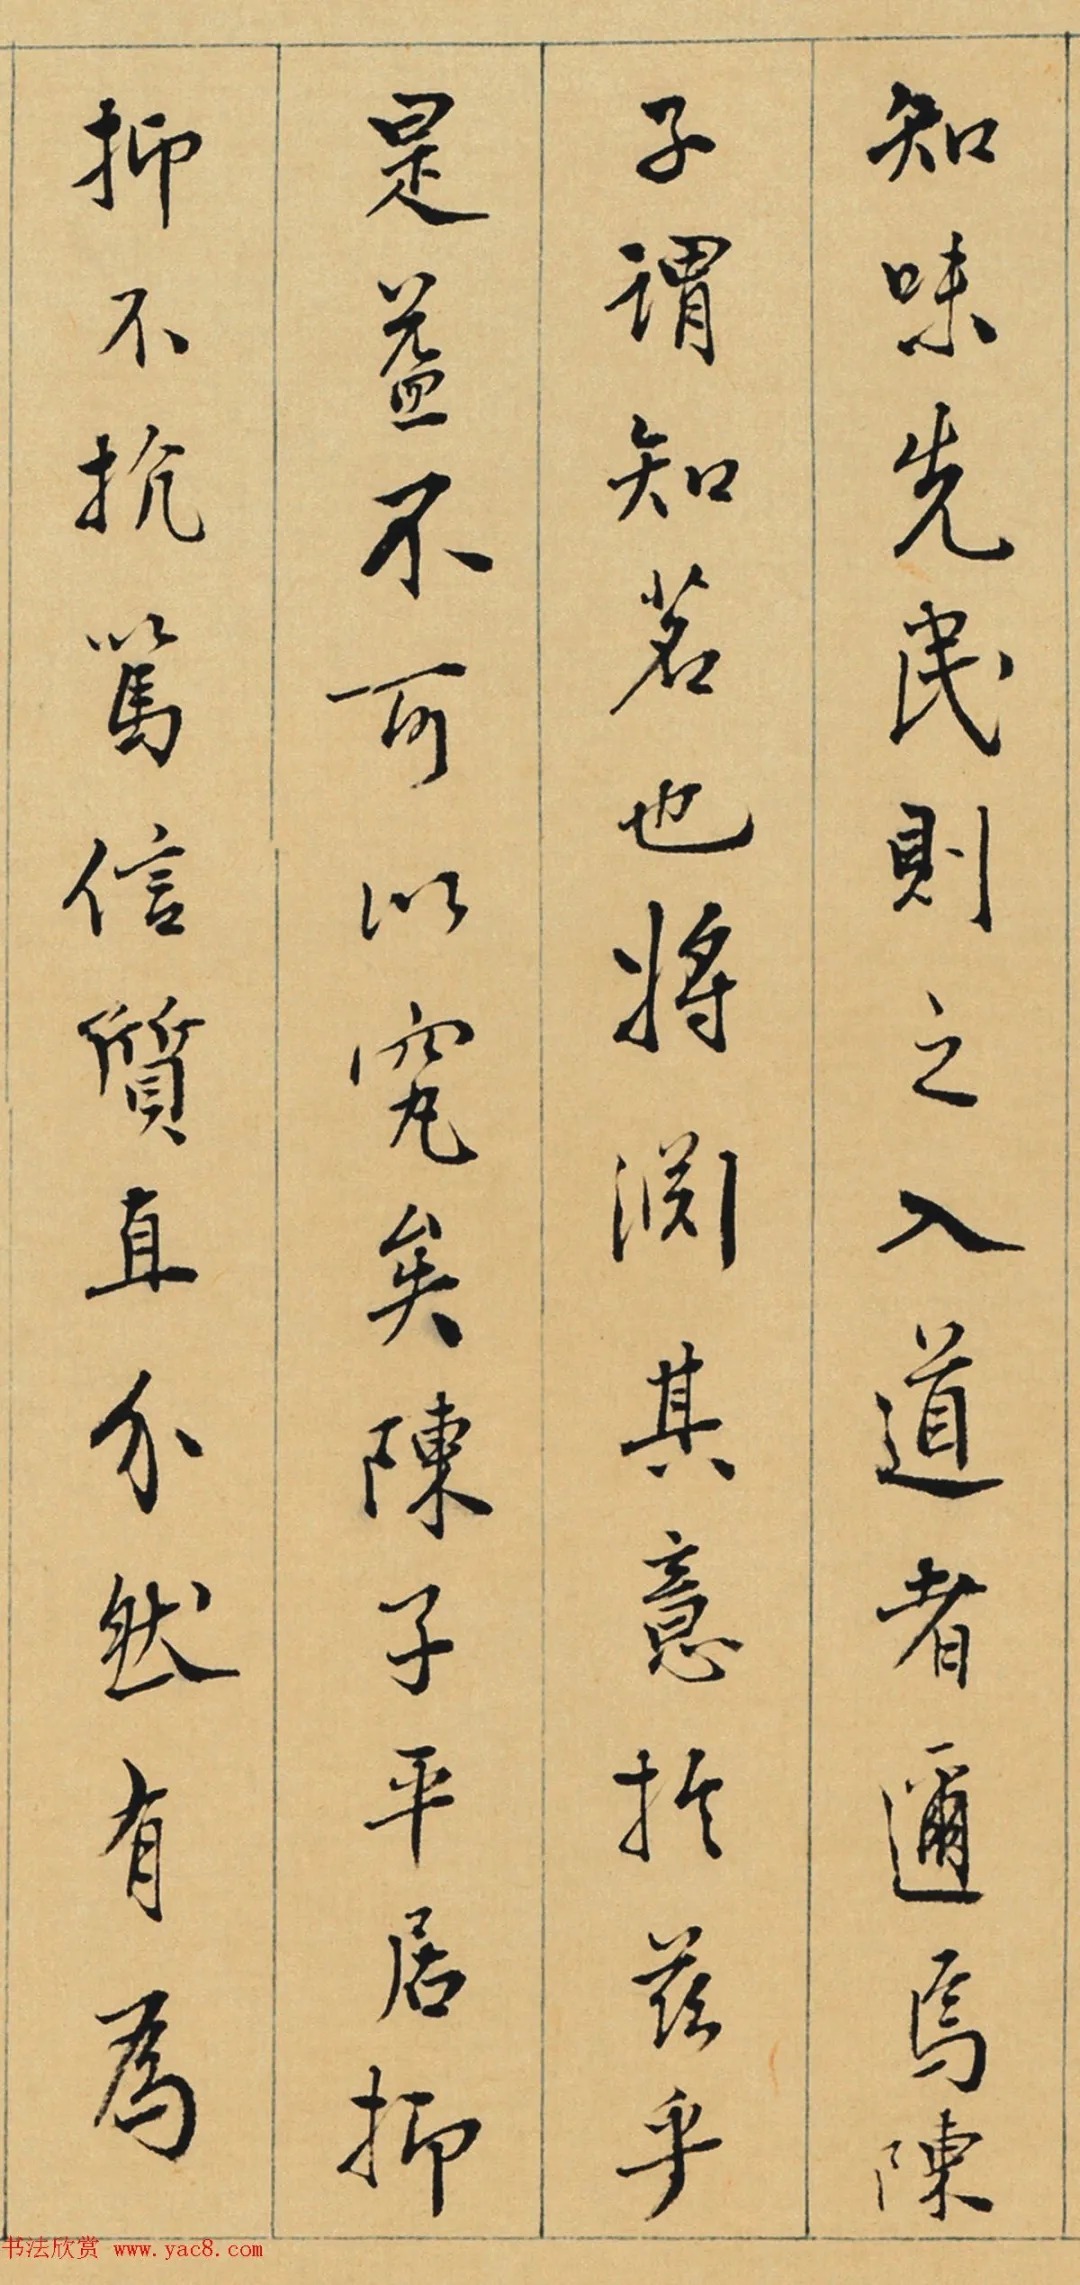 知味先民則之入道者邇焉陳
子謂知茗也將淵其意於茲乎
是蓋不可以究矣陳子平居抑
抑不抗篤信質直介然有為
书法欣赏 www.yac8.com